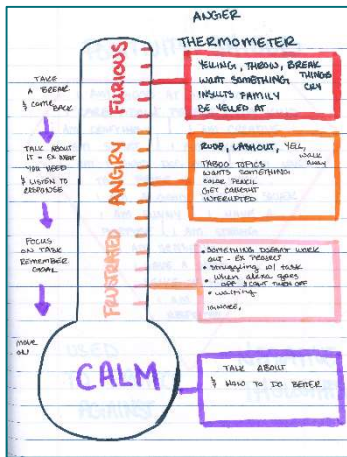 ANGER
THERMOMETER
TAKE
A BREAK
& COME
BACK
TALK ABOUT
IT - EX WHAT
YOU NEED
& LISTEN TO
RESPONSE
FOCUS
ON TASK
REMEMBER
GOAL
MOVE
ON!
FURIOUS
ANGRY
FRUSTRATED
CALM
YELLING, THROW, BREAK
THINGS
WANT SOMETHING
CRY
INSULTS FAMILY
BE YELLED AT
RUDE, LASHOUT, YELL,
WALK
AWAY
TABOO TOPICS
WANTS SOMETHING
COLOR PENCIL
GET CAUGHT
INTERUPTED
• SOMETHING DOESNT WORK
OUT - EX PROJECT
• Struggling w/ task
• when alexa goes
OFF & CANT TURN OFF
• waiting
IGNORE,
TALK ABOUT
& HOW TO DO BETTER
USED
AGAINST